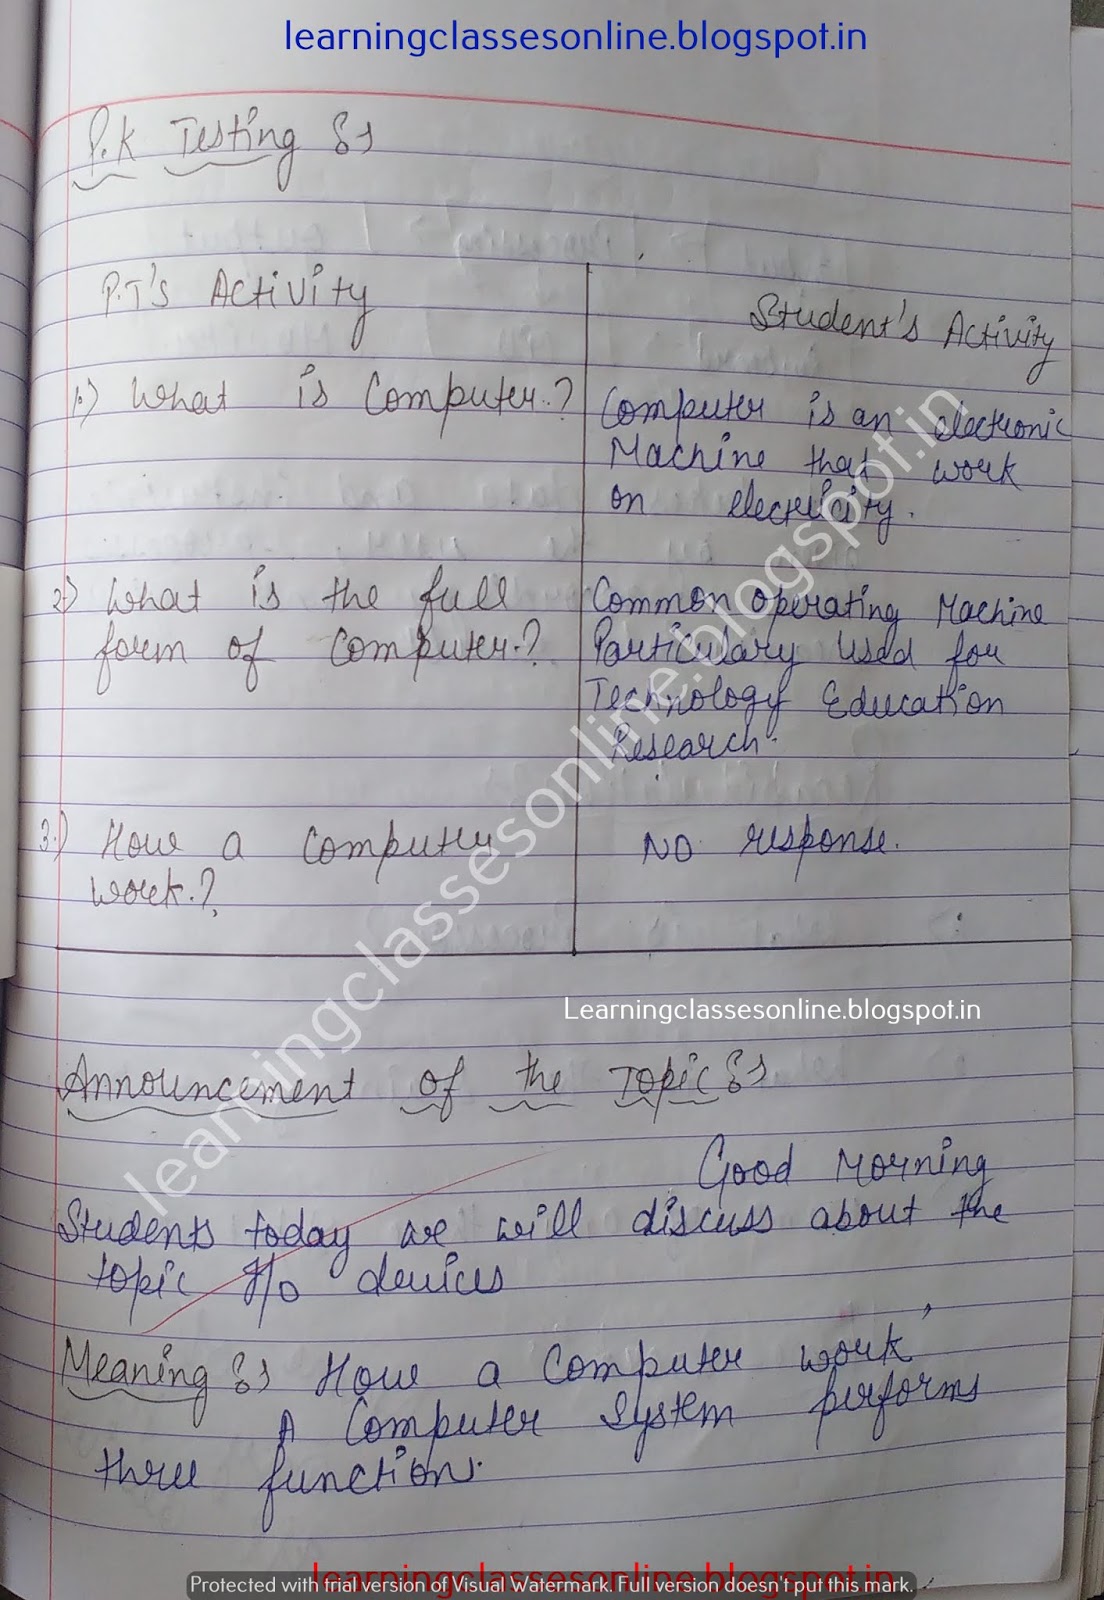 learningclassesonline.blogspot.in
P.K Testing :-
P.T's Activity
Student's Activity
1.) What is Computer.?
Computer is an electronic
Machine that work
on electricity.
2.) What is the full
form of Computer.?
Common operating Machine
Particulary used for
Technology Education
Research.
3.) How a Computer
work.?
No response.
Learningclassesonline.blogspot.in
Announcement of the Topic :-
Good Morning
Students today we will discuss about the
topic I/O devices
Meaning :- How a Computer work
A Computer System performs
three function.
learningclassesonline.blogspot.in
learningclassesonline.blogspot.in
Protected with trial version of Visual Watermark. Full version doesn't put this mark.